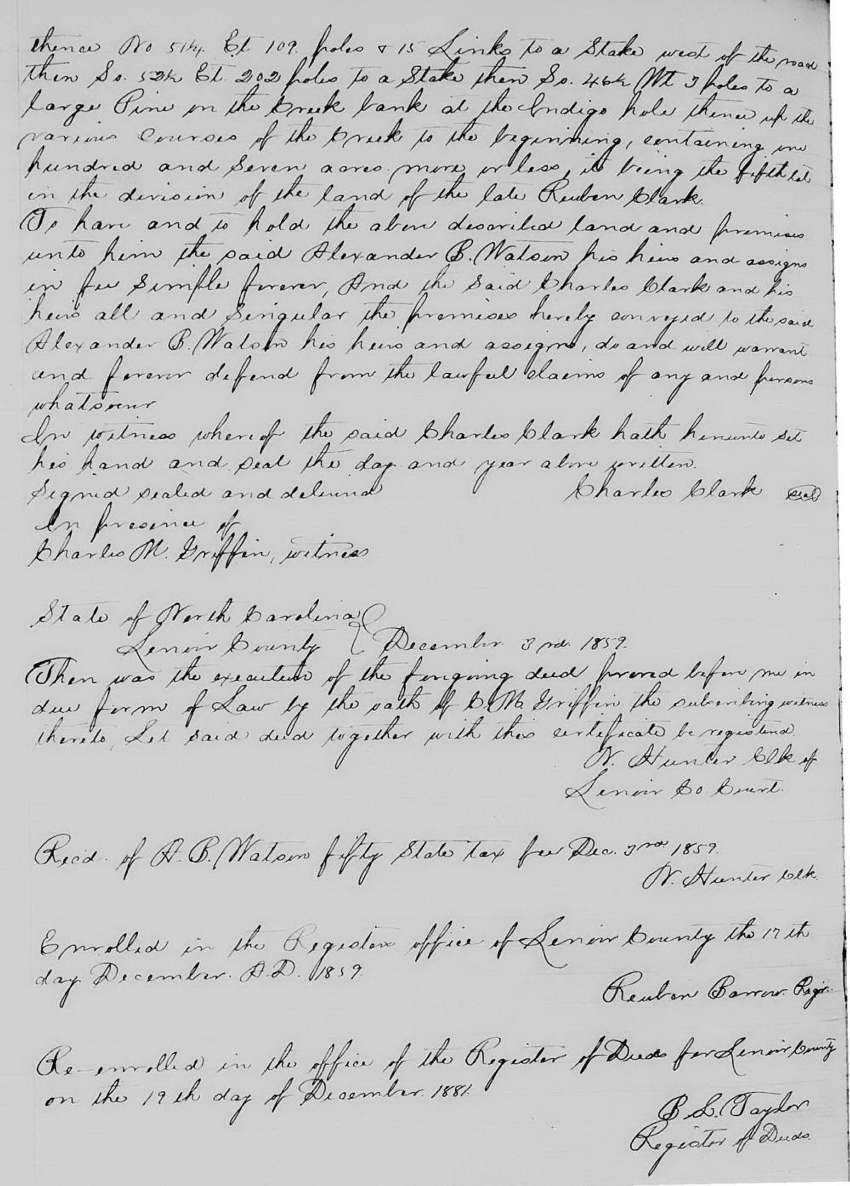 thence No 51¼ Et 109 poles & 15 Links to a Stake west of the road
then So. 52½ Et 202 poles to a Stake then So. 46½ Wt 3 poles to a
large Pine on the Creek bank at the Indigo hole thence up the
various Courses of the Creek to the beginning, containing one
hundred and Seven acres more or less, it being the fifth lot
in the division of the land of the late Reuben Clark.
To have and to hold the above described land and premises
unto him the said Alexander B. Watson his heirs and assigns
in fee Simple forever, And the Said Charles Clark and his
heirs all and Singular the premises hereby conveyed to the said
Alexander B. Watson his heirs and assigns, do and will warrant
and forever defend from the lawful claims of any and persons
whatsoever
In witness whereof the said Charles Clark hath hereunto set
his hand and seal the day and year above written.
Signed sealed and delivered Charles Clark seal
in presence of
Charles M. Griffin, witness
State of North Carolina
Lenoir County December 3rd 1859.
Then was the execution of the foregoing deed proved before me in
due form of Law by the oath of C. M. Griffin the subscribing witness
thereto, Let said deed together with this certificate be registered.
W. Hunter Clk of
Lenoir Co Court.
Recd. of A. B. Watson fifty State tax fee Dec. 3rd 1859.
W. Hunter Clk.
Enrolled in the Registers office of Lenoir County the 17th
day December. A.D. 1859
Reuben Barrow Regr.
Re-enrolled in the office of the Register of Deeds for Lenoir County
on the 19th day of December 1881.
B. L. Taylor
Register of Deeds.